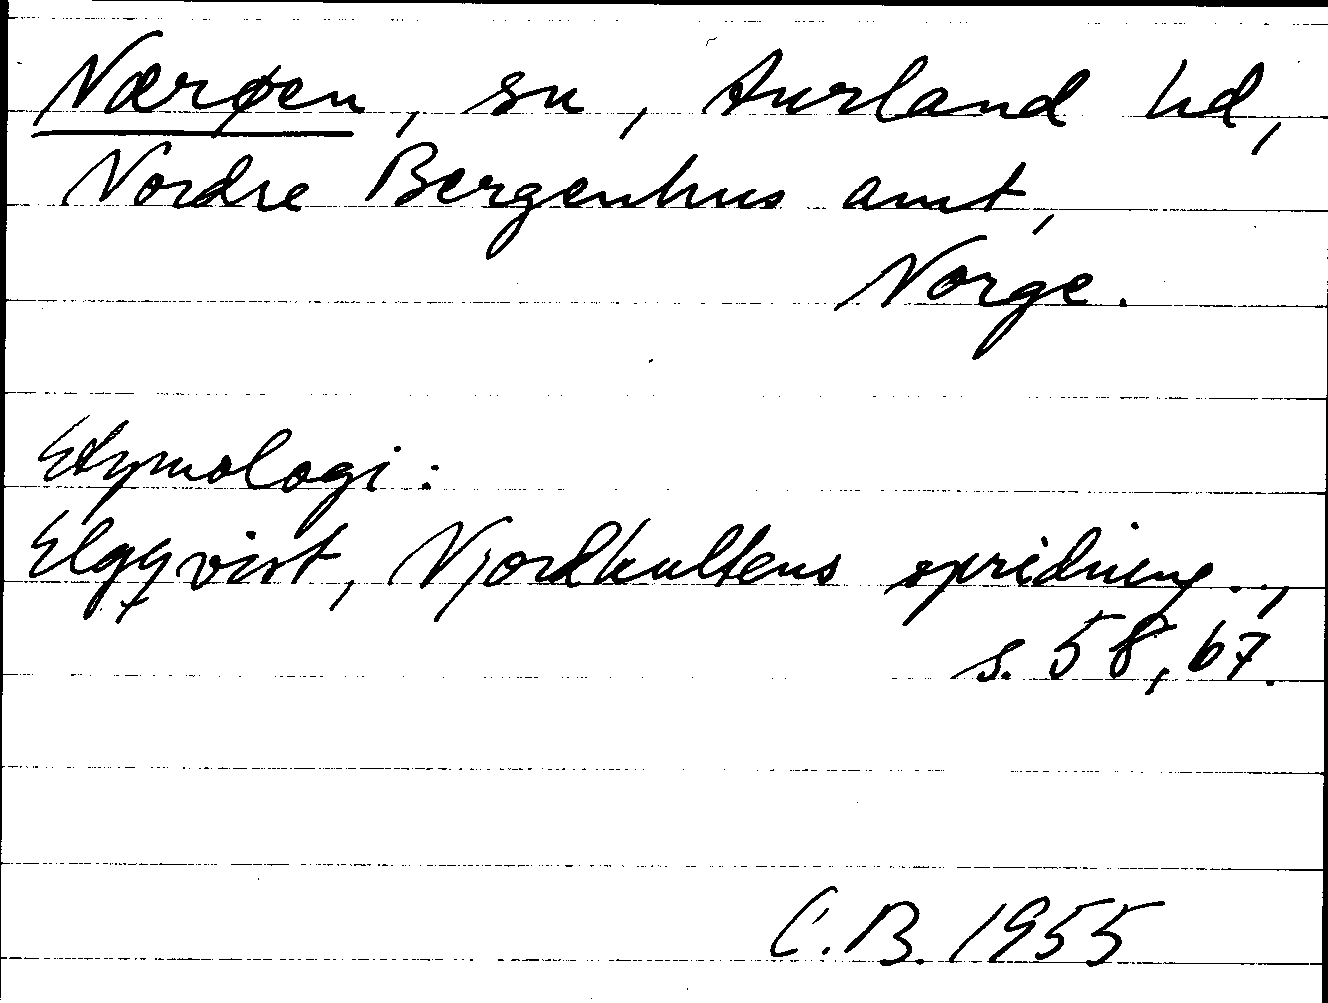 Nærøen, sn, Aurland hd,
Nordre Bergenhus amt,
Norge.
Etymologi:
Elgqvist, Njordkultens spridning..,
s. 58, 67.
C.B. 1955